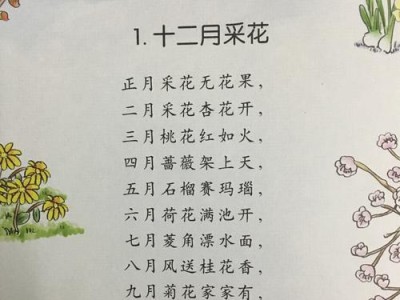 1.十二月采花
正月采花无花果，
二月采花杏花开，
三月桃花红如火，
四月蔷薇架上天，
五月石榴赛玛瑙，
六月荷花满池开，
七月菱角漂水面，
八月风送桂花香，
九月菊花家家有，